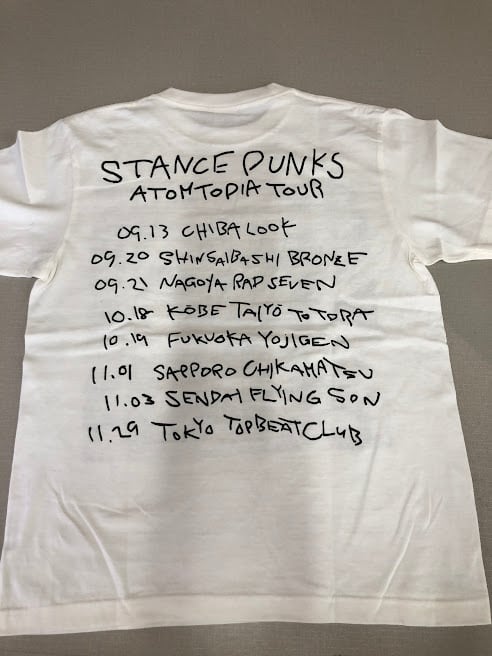 STANCE PUNKS
ATOMTOPIA TOUR
09.13 CHIBA LOOK
09.20 SHINSAIBASHI BRONZE
09.21 NAGOYA RAD SEVEN
10.18 KOBE TAIYŌ TO TORA
10.19 FUKUOKA YOJIGEN
11.01 SAPPORO CHIKAMATSU
11.03 SENDAI FLYING SON
11.29 TOKYO TOPBEAT CLUB